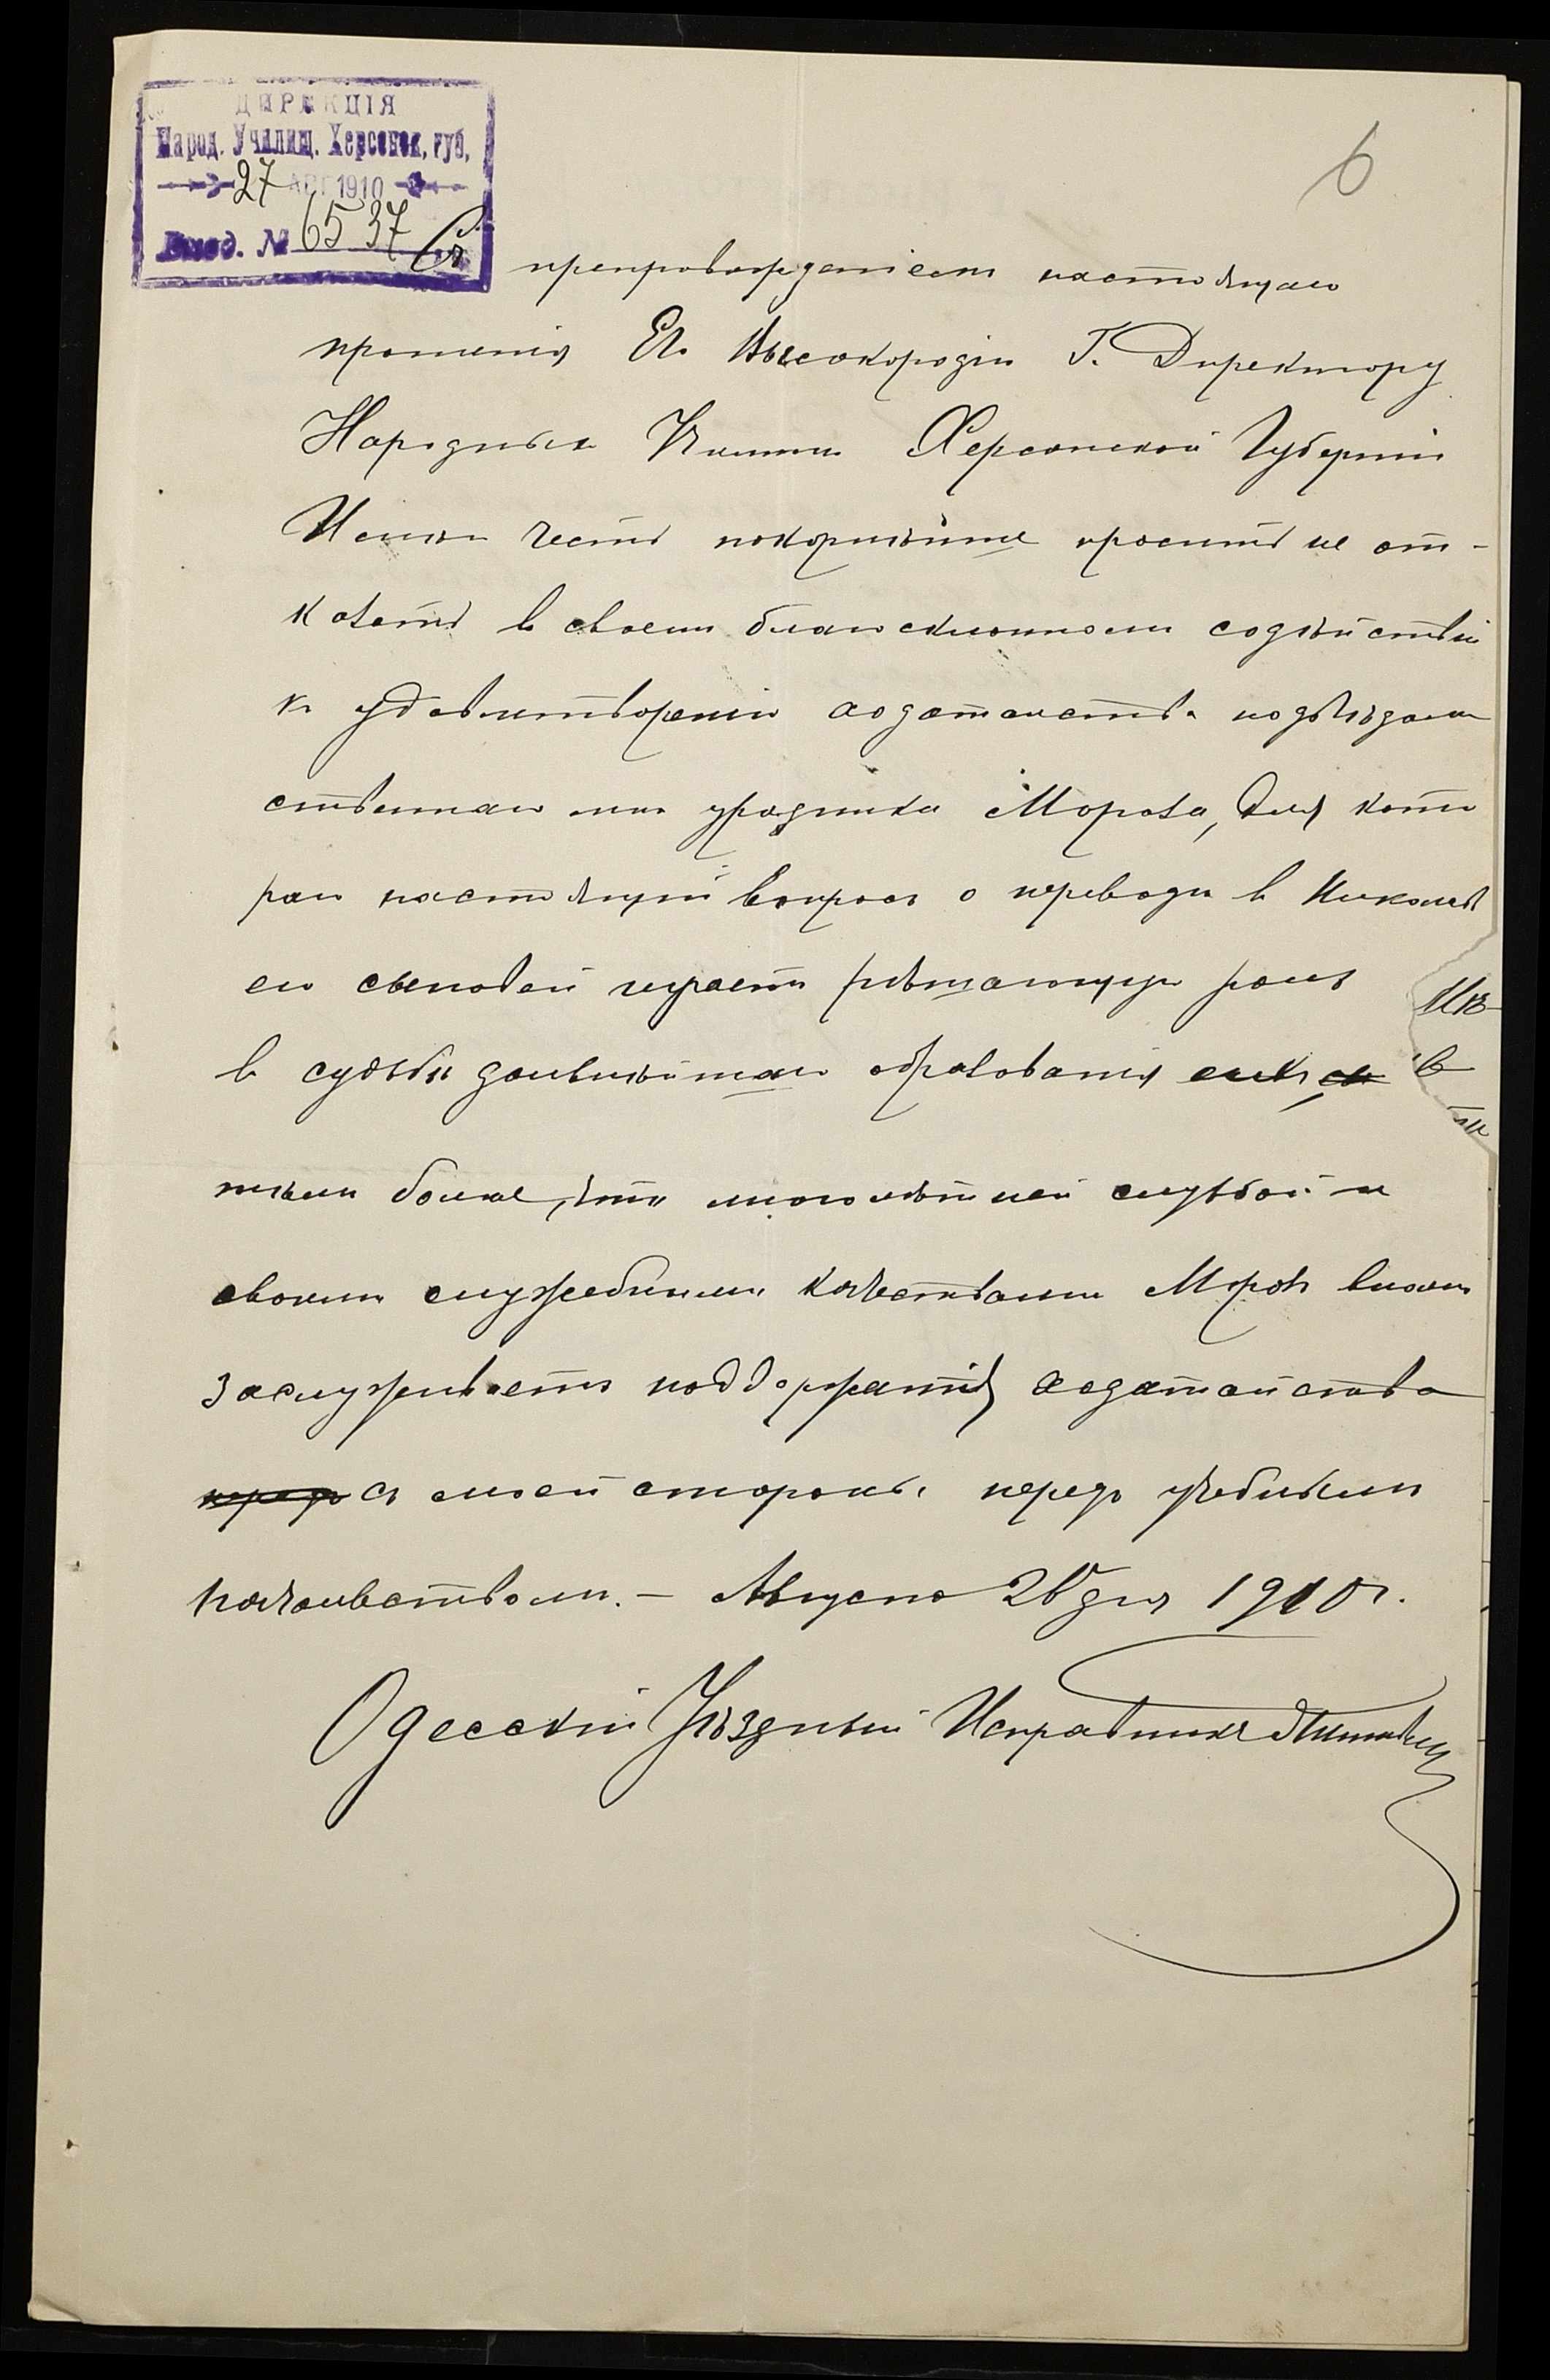 ДИРЕКЦІЯ
Народ. Училищ. Херсонск. губ.
27 АВГ 1910
Вход. № 6537
6
Съ препровожденіемъ настоящаго
прошенія Его Высокородію Г. Директору
Народныхъ Училищъ Херсонской Губерніи
Имѣю честь покорнѣйше просить не от-
казать в своемъ благосклонномъ содѣйствіи
къ удовлетворенію ходатайства подвѣдом
ственнаго мнѣ урядника Мороза, для кото
раго настоящій вопросъ о переводѣ в
его сыновей играетъ рѣшающую роль
в судьбѣ дальнѣйшаго образованія
тѣмъ болѣе, что многолѣтней службой и
своими служебными качествами Морозъ вполнѣ
заслуживаетъ поддержать ходатайство
передъ съ моей стороны передъ учебнымъ
начальствомъ. — Августа 26 дня 1910 г.
Одесскій Уѣздный Исправникъ